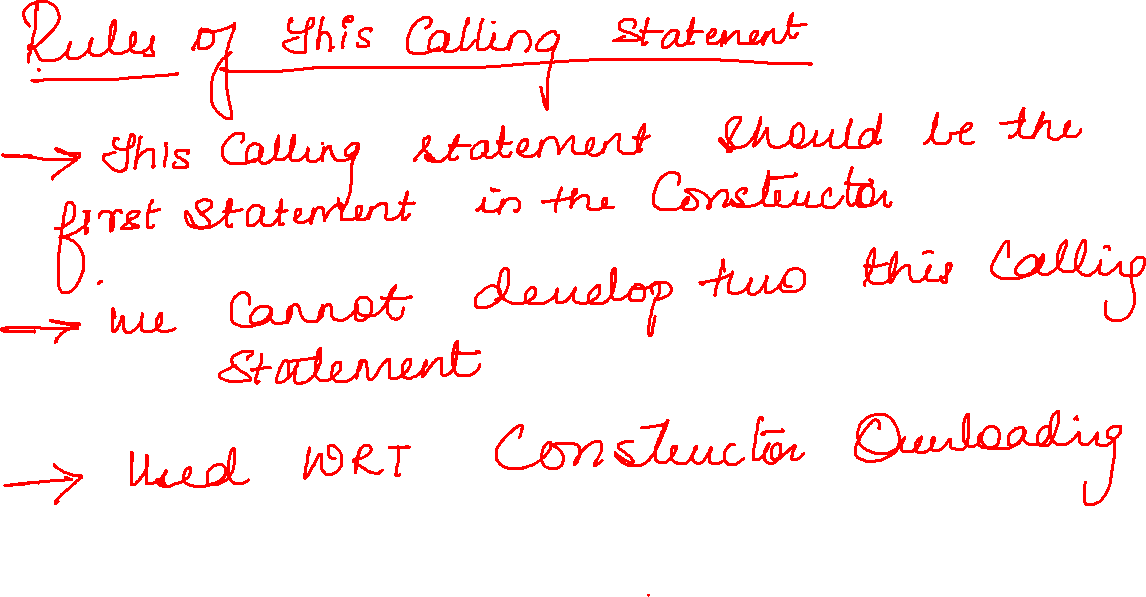 Rules of This Calling Statement
→ This Calling statement should be the
first Statement in the Constructor
→ we Cannot develop two this Calling
Statement
→ Used WRT Constructor Overloading